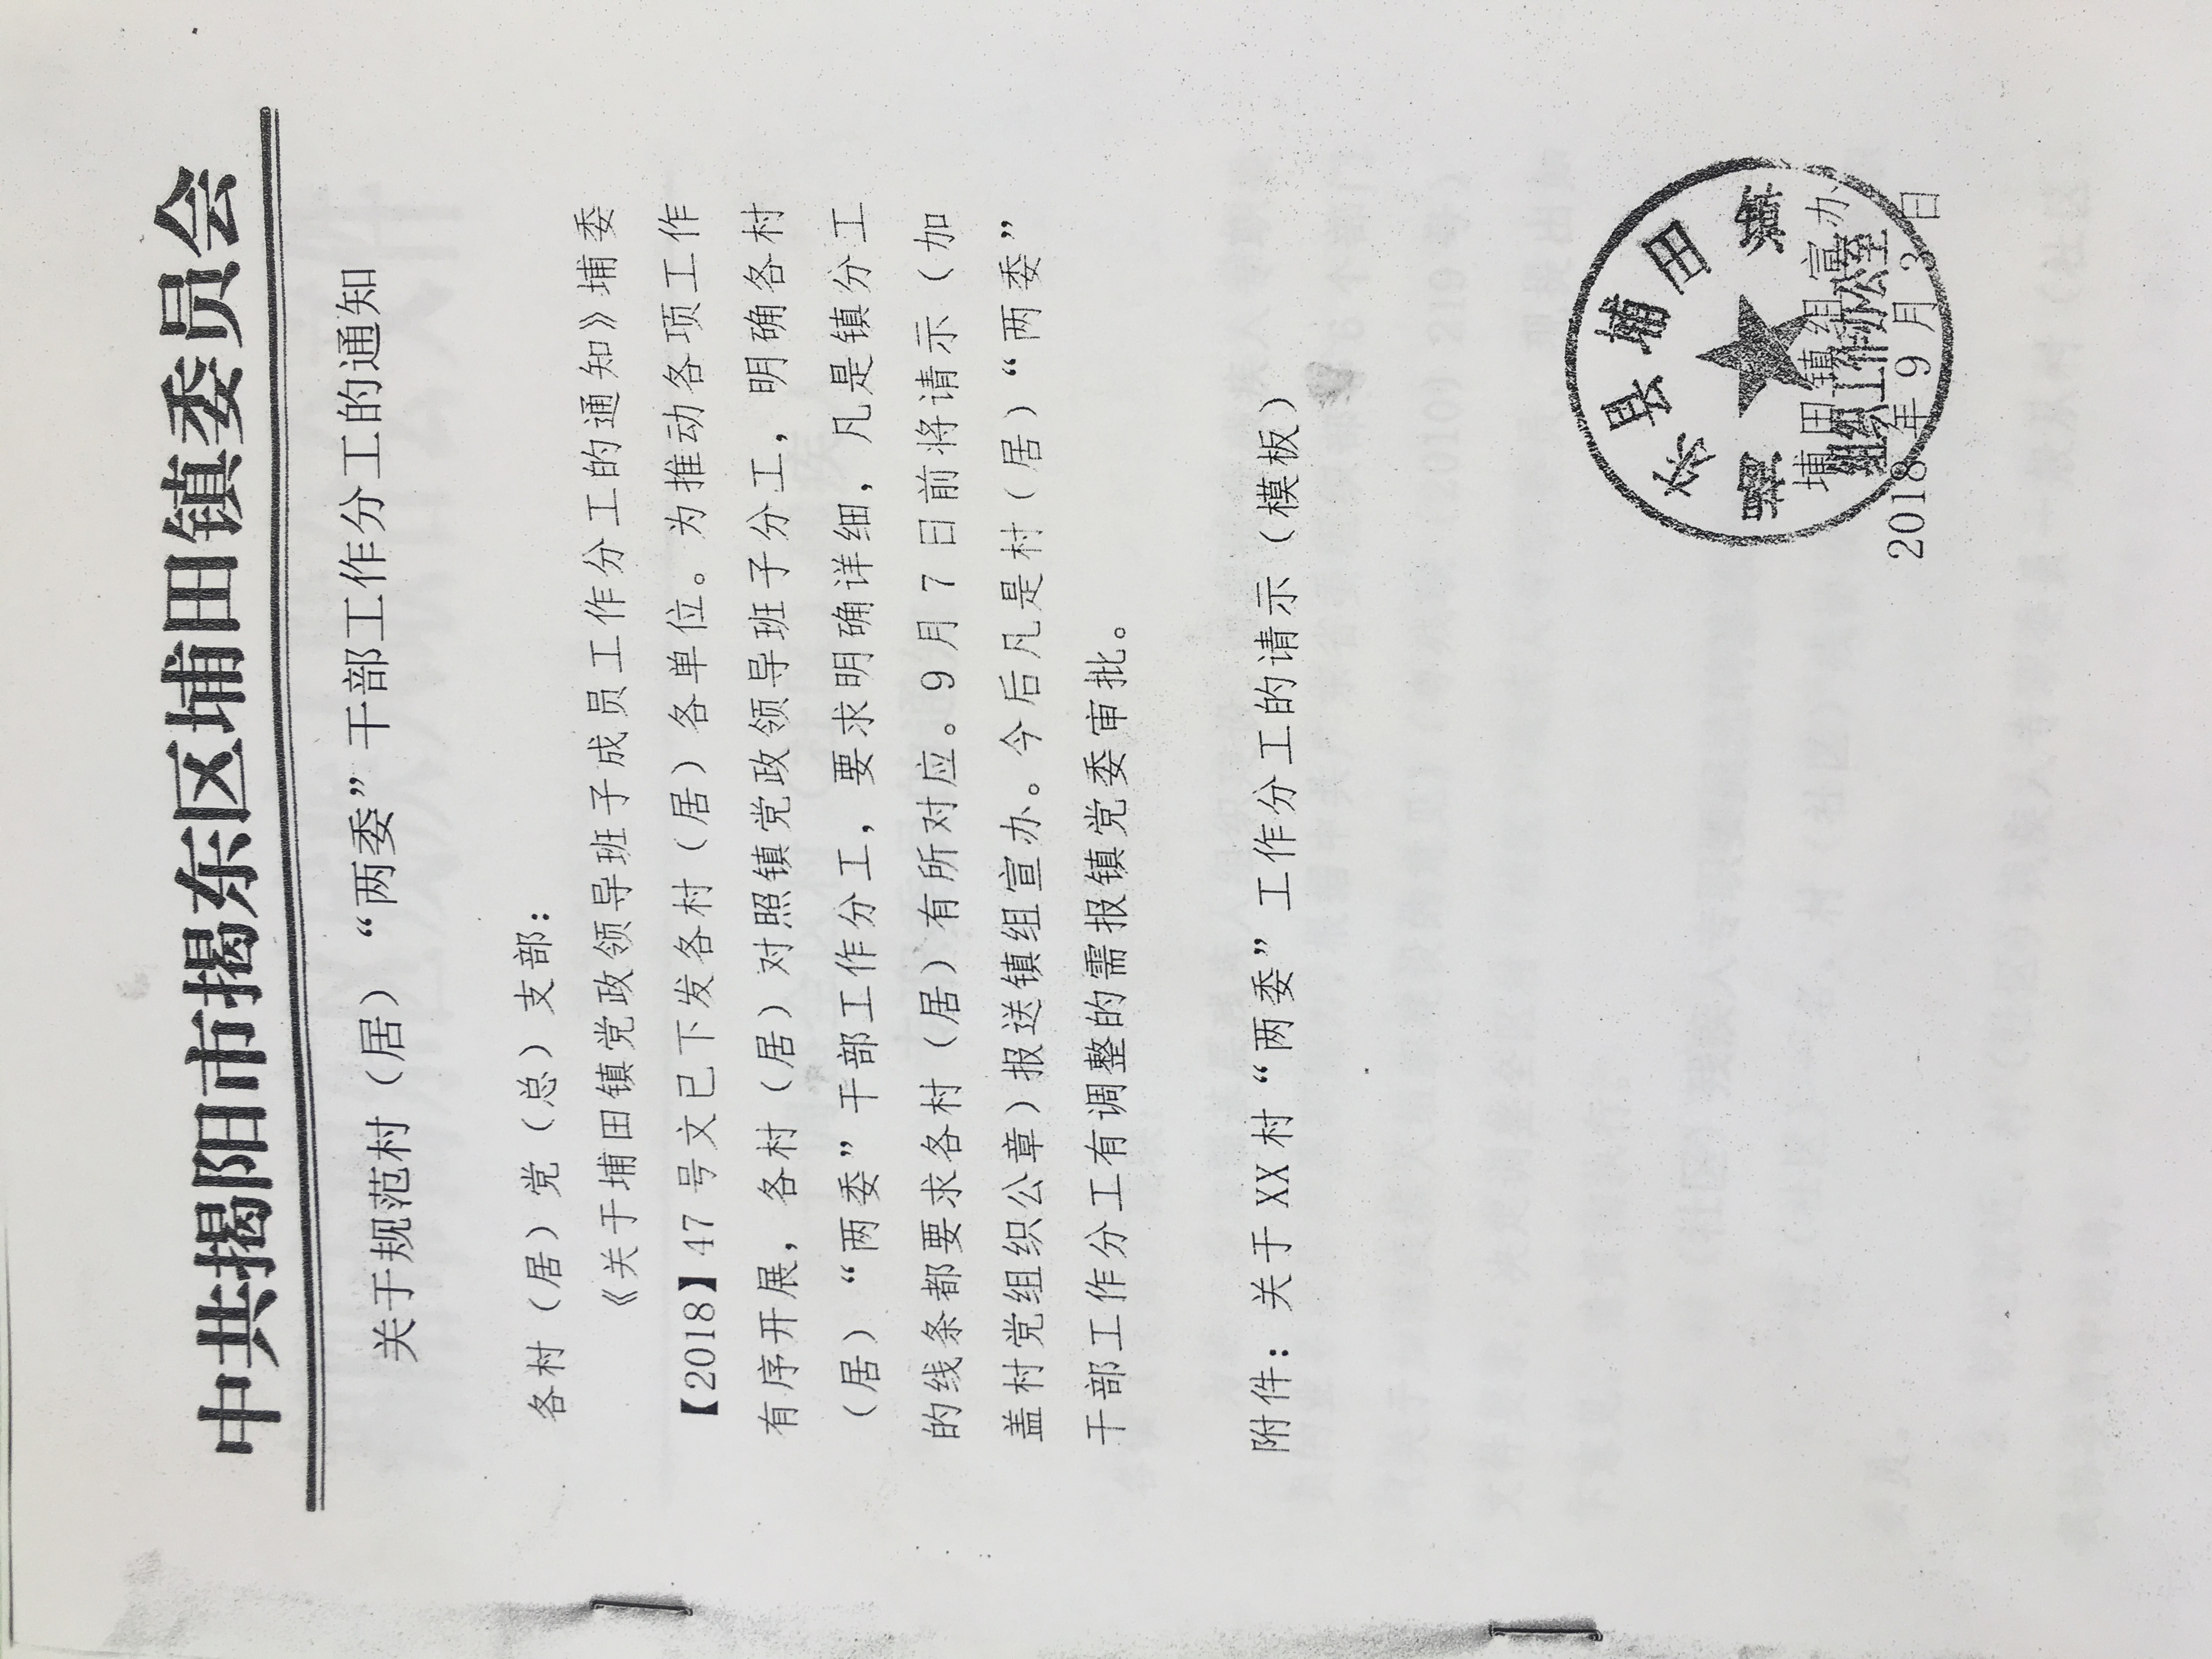 中共揭阳市揭东区埔田镇委员会
关于规范村（居）“两委”干部工作分工的通知
各村（居）党（总）支部：
《关于埔田镇党政领导班子成员工作分工的通知》埔委
【2018】47号文已下发各村（居）各单位。为推动各项工作
有序开展，各村（居）对照镇党政领导班子分工，明确各村
（居）“两委”干部工作分工，要求明确详细，凡是镇分工
的线条都要求各村（居）有所对应。9月7日前将请示（加
盖村党组织公章）报送镇组宣办。今后凡是村（居）“两委”
干部工作分工有调整的需报镇党委审批。
附件：关于XX村“两委”工作分工的请示（模板）
揭东县埔田镇
埔田镇组宣办
组织工作办公室
2018年9月3日